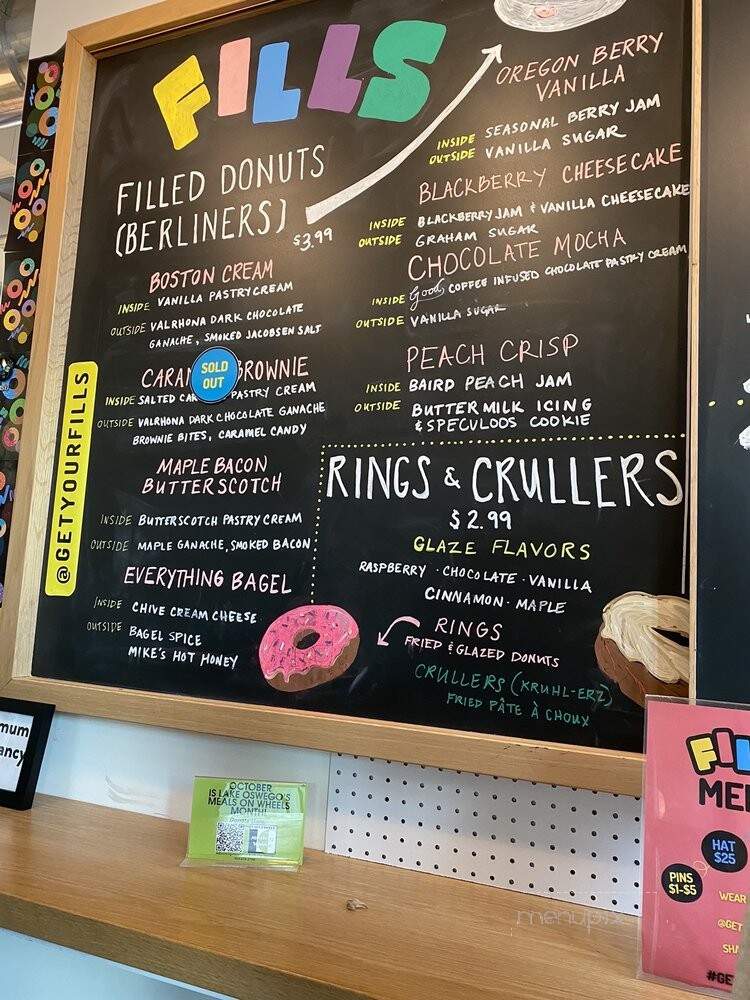 FILLS
FILLED DONUTS
(BERLINERS)
$3.99
BOSTON CREAM
INSIDE VANILLA PASTRY CREAM
OUTSIDE VALRHONA DARK CHOCOLATE
GANACHE, SMOKED JACOBSEN SALT
SOLD
OUT
BROWNIE
INSIDE SALTED PASTRY CREAM
OUTSIDE VALRHONA DARK CHOCOLATE GANACHE
BROWNIE BITES, CARAMEL CANDY
MAPLE BACON
BUTTERSCOTCH
INSIDE BUTTERSCOTCH PASTRY CREAM
OUTSIDE MAPLE GANACHE, SMOKED BACON
EVERYTHING BAGEL
INSIDE CHIVE CREAM CHEESE
OUTSIDE BAGEL SPICE
MIKE'S HOT HONEY
@GETYOURFILLS
OREGON BERRY
VANILLA
INSIDE SEASONAL BERRY JAM
OUTSIDE VANILLA SUGAR
BLACKBERRY CHEESECAKE
INSIDE BLACKBERRY JAM & VANILLA CHEESECAKE
OUTSIDE GRAHAM SUGAR
CHOCOLATE MOCHA
INSIDE Good COFFEE INFUSED CHOCOLATE PASTRY CREAM
OUTSIDE VANILLA SUGAR
PEACH CRISP
INSIDE BAIRD PEACH JAM
OUTSIDE BUTTERMILK ICING
& SPECULOOS COOKIE
RINGS & CRULLERS
$2.99
GLAZE FLAVORS
RASPBERRY · CHOCOLATE · VANILLA
CINNAMON · MAPLE
RINGS
FRIED & GLAZED DONUTS
CRULLERS (KRUHL-ERZ)
FRIED PÂTE À CHOUX
OCTOBER
IS LAKE OSWEGO'S
MEALS ON WHEELS
MONTH!
HAT
$25
PINS
$1-$5
WEAR
@GET
menupix